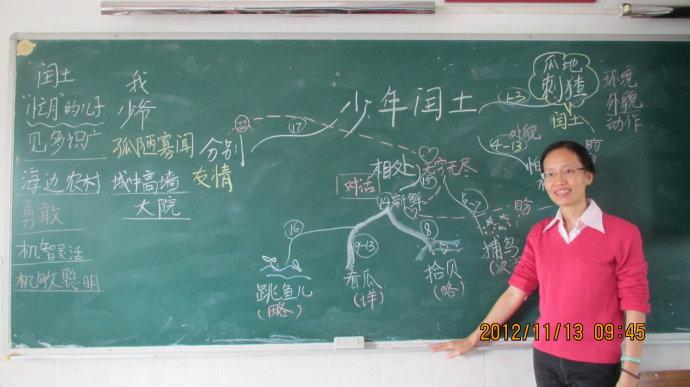 闰土
"忙月"的儿子
见多识广
海边农村
勇敢
机智灵活
机敏聪明
我
少爷
孤陋寡闻
城中高墙
大院
少年闰土
分别
友情
17
相处
无穷无尽
15
对话
14新鲜
16
跳鱼儿
(略)
9-13
看瓜
(详)
8
拾贝
(略)
6-7
捕鸟
盼
1-3
瓜地
刺猹
闰土
4-13
外貌
盼
环境
外貌
动作
2012/11/13 09:45